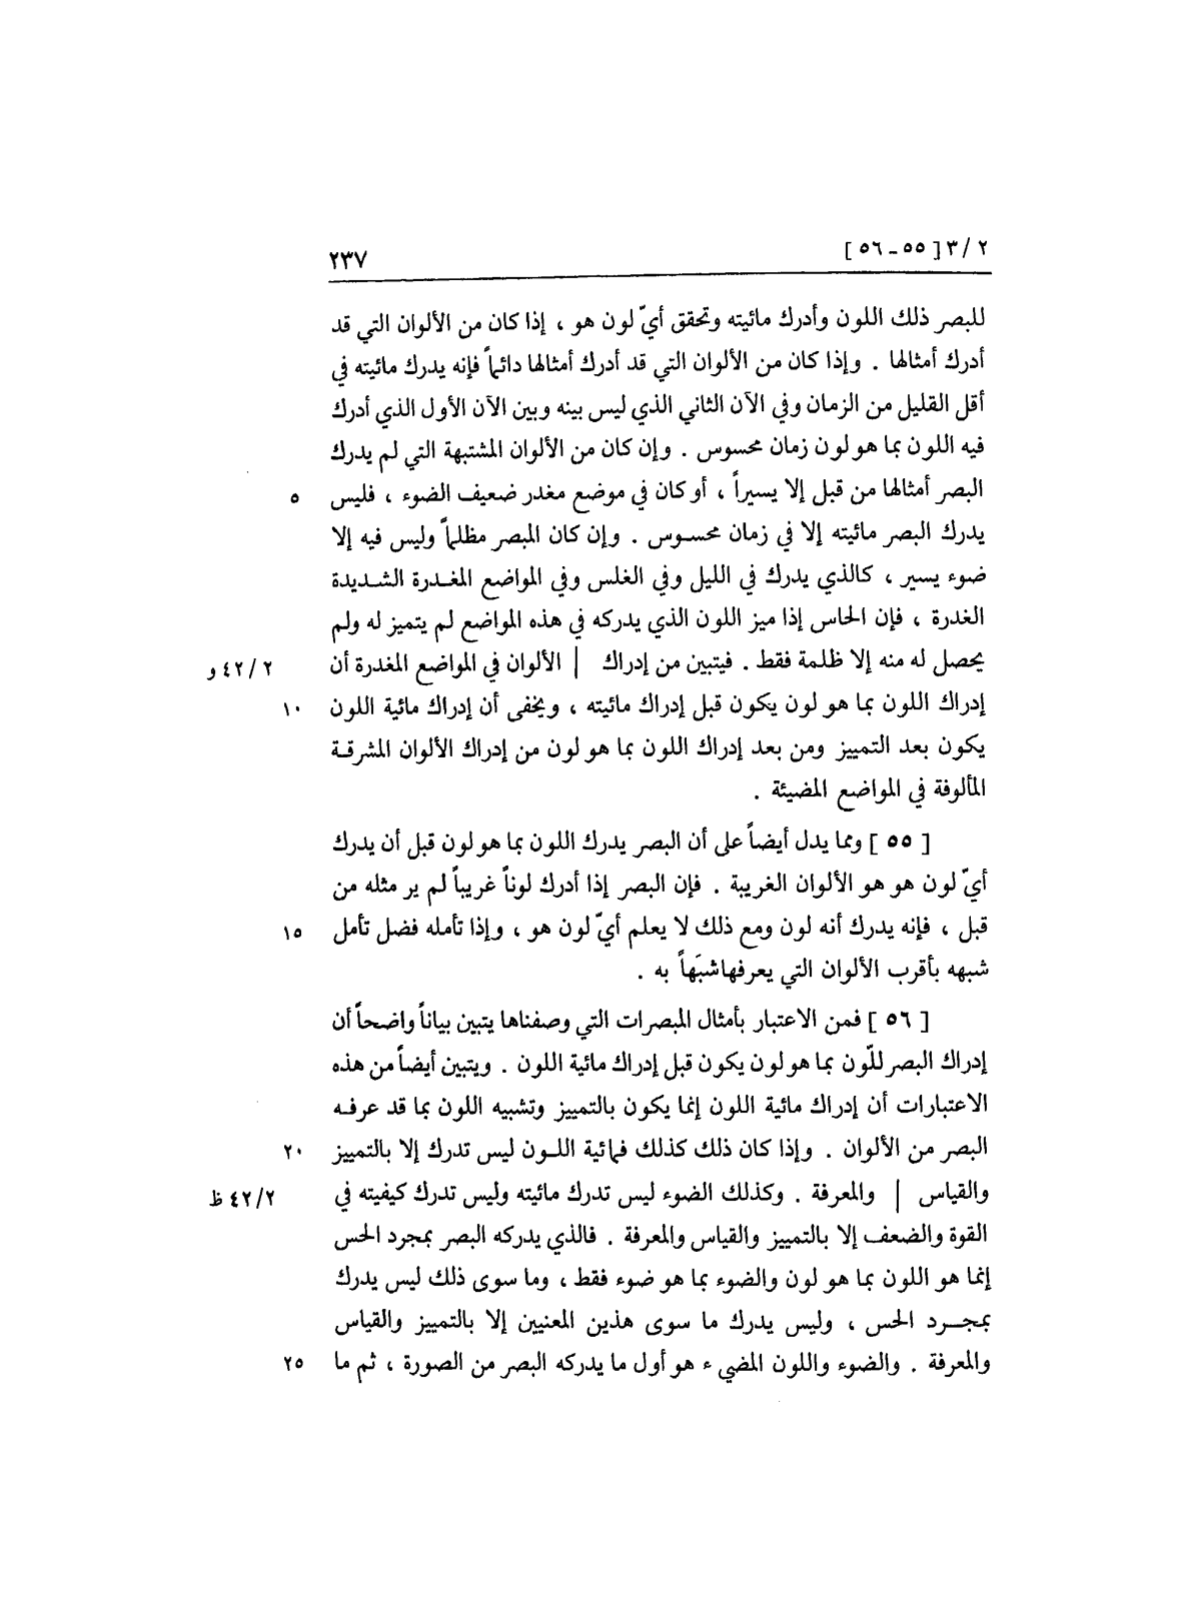 ٢ /٣ [ ٥٥ ـ ٥٦ ] ٢٣٧
للبصر ذلك اللون وأدرك مائيته وتحقق أيّ لون هو ، إذا كان من الألوان التي قد
أدرك أمثالها . وإذا كان من الألوان التي قد أدرك أمثالها دائماً فإنه يدرك مائيته في
أقل القليل من الزمان وفي الآن الثاني الذي ليس بينه وبين الآن الأول الذي أدرك
فيه اللون بما هو لون زمان محسوس . وإن كان من الألوان المشتبهة التي لم يدرك
البصر أمثالها من قبل إلا يسيراً ، أو كان في موضع مغدر ضعيف الضوء ، فليس ٥
يدرك البصر مائيته إلا في زمان محسوس . وإن كان المبصر مظلماً وليس فيه إلا
ضوء يسير ، كالذي يدرك في الليل وفي الغلس وفي المواضع المغدرة الشديدة
الغدرة ، فإن الحاس إذا ميز اللون الذي يدركه في هذه المواضع لم يتميز له ولم
يحصل له منه إلا ظلمة فقط . فيتبين من إدراك | الألوان في المواضع المغدرة أن ٢ /٤٢ و
إدراك اللون بما هو لون يكون قبل إدراك مائيته ، ويخفى أن إدراك مائية اللون ١٠
يكون بعد التمييز ومن بعد إدراك اللون بما هو لون من إدراك الألوان المشرقة
المألوفة في المواضع المضيئة .
[ ٥٥ ] ومما يدل أيضاً على أن البصر يدرك اللون بما هو لون قبل أن يدرك
أيّ لون هو هو الألوان الغريبة . فإن البصر إذا أدرك لوناً غريباً لم ير مثله من
قبل ، فإنه يدرك أنه لون ومع ذلك لا يعلم أيّ لون هو ، وإذا تأمله فضل تأمل ١٥
شبهه بأقرب الألوان التي يعرفها شبَهاً به .
[ ٥٦ ] فمن الاعتبار بأمثال المبصرات التي وصفناها يتبين بياناً واضحاً أن
إدراك البصر للّون بما هو لون يكون قبل إدراك مائية اللون . ويتبين أيضاً من هذه
الاعتبارات أن إدراك مائية اللون إنما يكون بالتمييز وتشبيه اللون بما قد عرفه
البصر من الألوان . وإذا كان ذلك كذلك فمائية اللون ليس تدرك إلا بالتمييز ٢٠
والقياس | والمعرفة . وكذلك الضوء ليس تدرك مائيته وليس تدرك كيفيته في ٢/ ٤٢ ظ
القوة والضعف إلا بالتمييز والقياس والمعرفة . فالذي يدركه البصر بمجرد الحس
إنما هو اللون بما هو لون والضوء بما هو ضوء فقط ، وما سوى ذلك ليس يدرك
بمجرد الحس ، وليس يدرك ما سوى هذين المعنيين إلا بالتمييز والقياس
والمعرفة . والضوء واللون المضيء هو أول ما يدركه البصر من الصورة ، ثم ما ٢٥